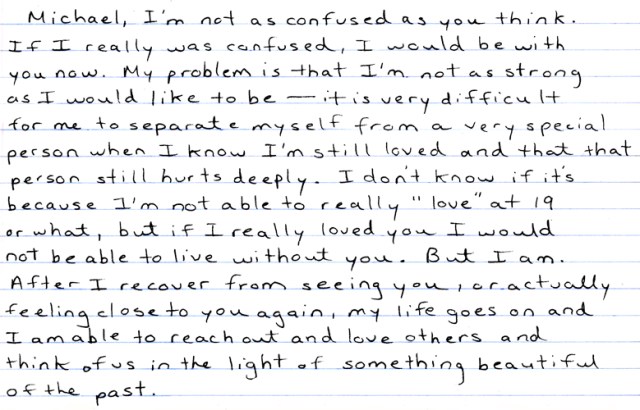 Michael, I'm not as confused as you think.
If I really was confused, I would be with
you now. My problem is that I'm not as strong
as I would like to be — it is very difficult
for me to separate myself from a very special
person when I know I'm still loved and that that
person still hurts deeply. I don't know if it's
because I'm not able to really "love" at 19
or what, but if I really loved you I would
not be able to live without you. But I am.
After I recover from seeing you, or actually
feeling close to you again, my life goes on and
I am able to reach out and love others and
think of us in the light of something beautiful
of the past.